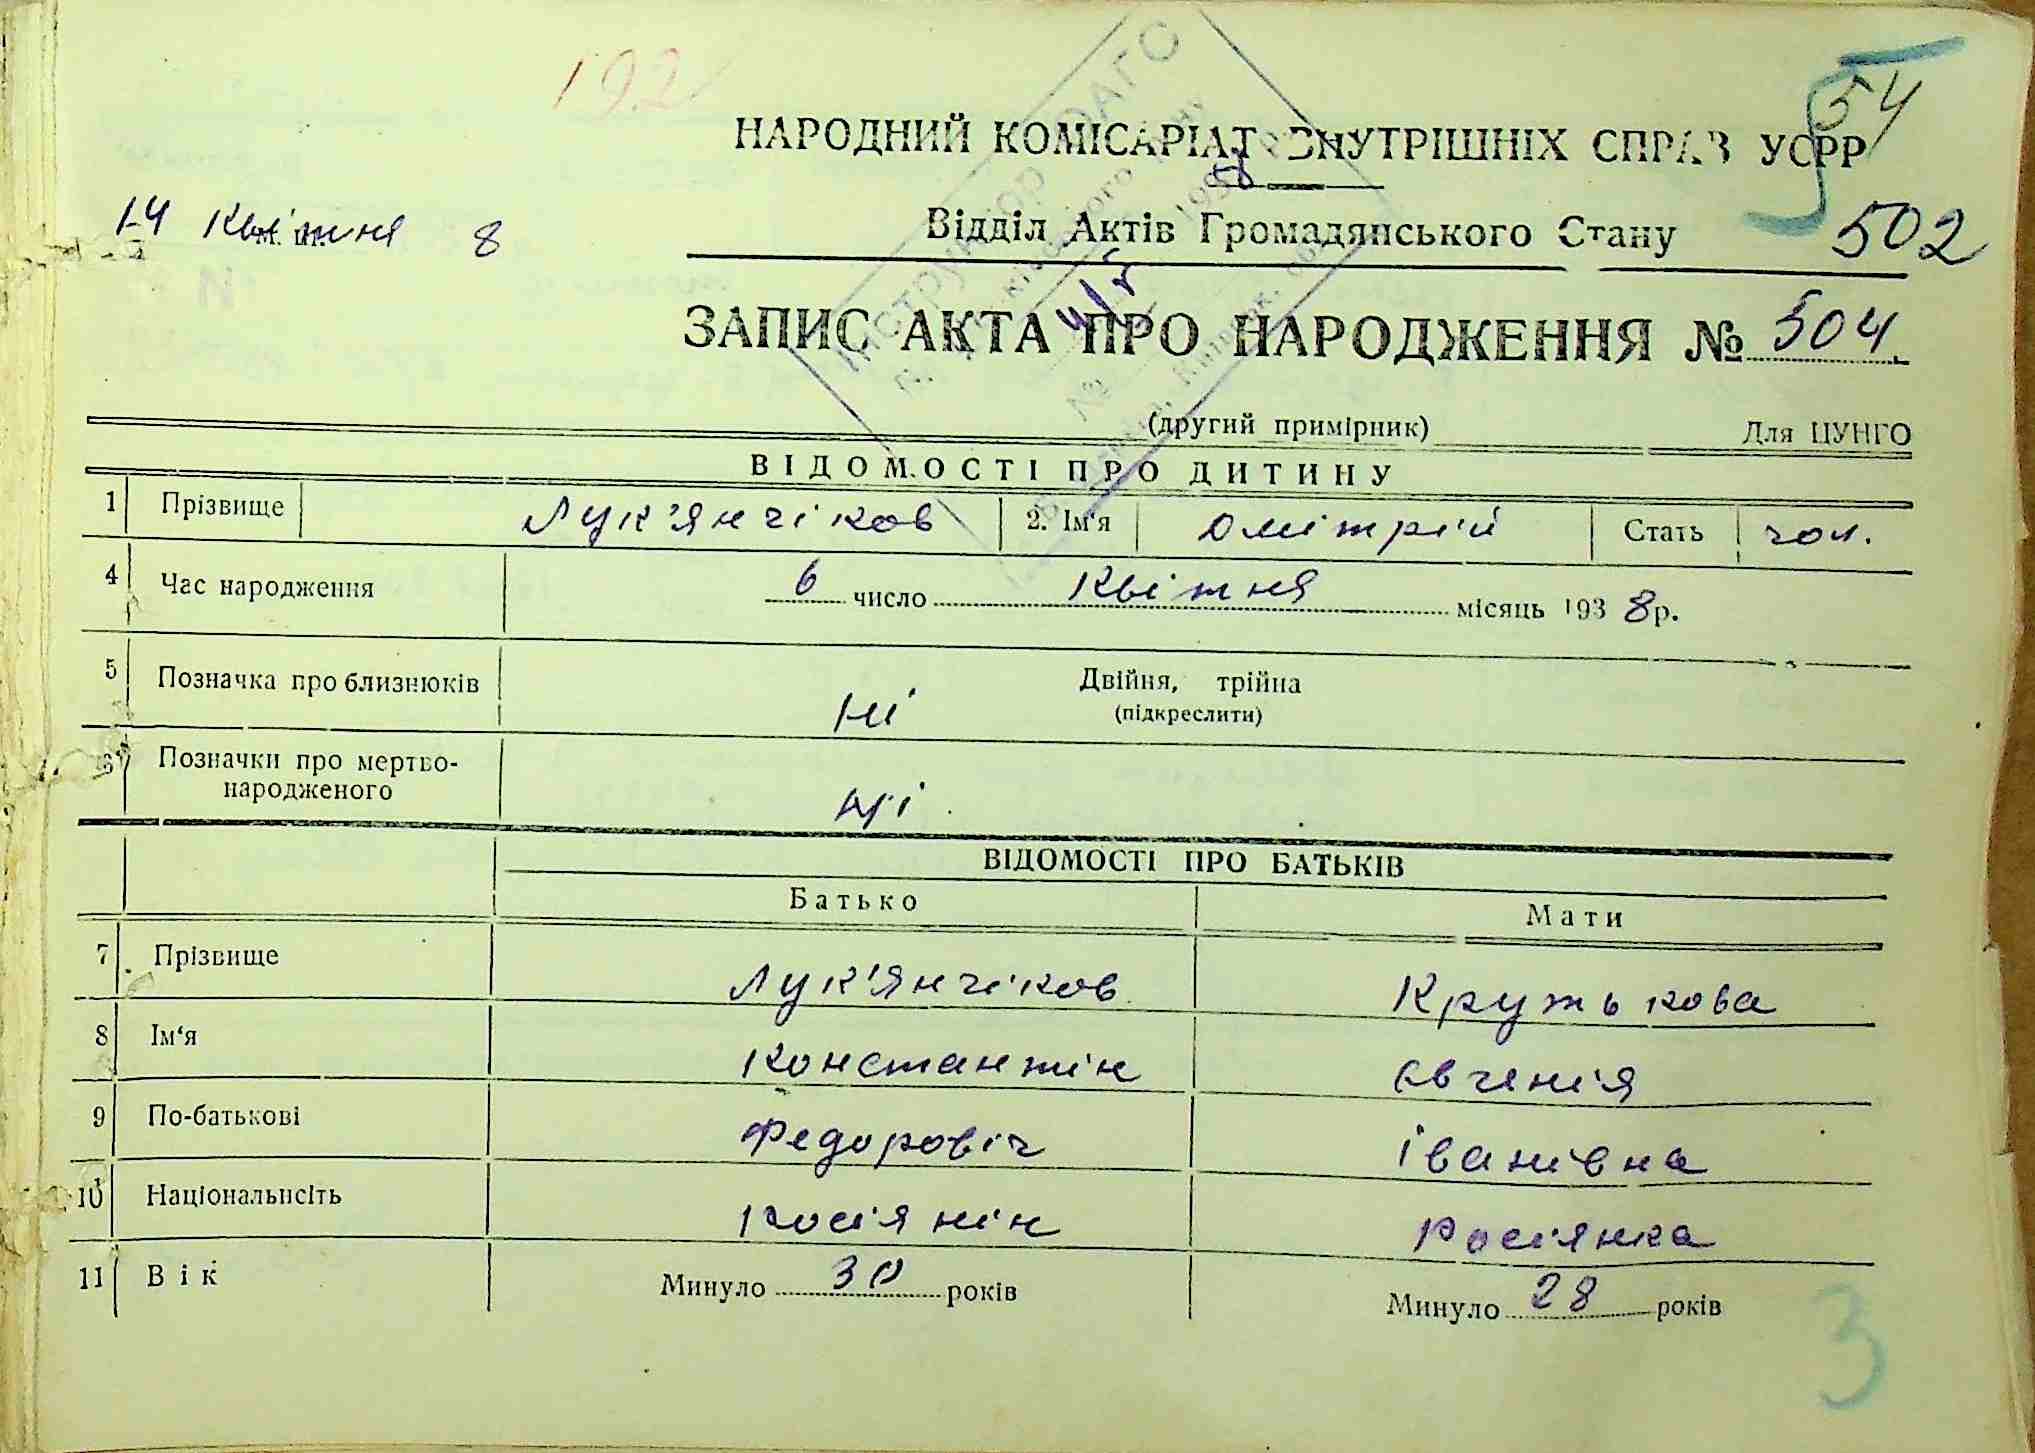 192
54
НАРОДНИЙ КОМІСАРІАТ ВНУТРІШНІХ СПРАВ УСРР
14 Квітня 8
Відділ Актів Громадянського Стану
502
ЗАПИС АКТА ПРО НАРОДЖЕННЯ № 504
(другий примірник) Для ЦУНГО
ВІДОМОСТІ ПРО ДИТИНУ
1 Прізвище Лук'янчіков 2. Ім'я Дмітрій Стать чол.
4 Час народження 6 число Квітня місяць 1938 р.
5 Позначка про близнюків ні Двійня, трійна
(підкреслити)
6 Позначки про мертво-
народженого ні
ВІДОМОСТІ ПРО БАТЬКІВ
Батько Мати
7 Прізвище Лук'янчіков Крутькова
8 Ім'я Константін Євгенія
9 По-батькові Федоровіч Іванівна
10 Національність Росіянін Росіянка
11 Вік Минуло 30 років Минуло 28 років
3